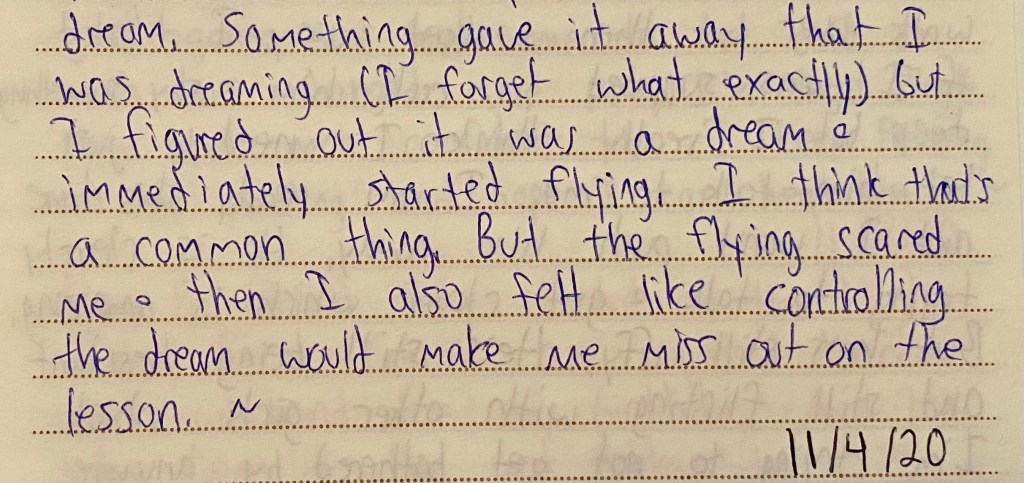 dream. Something gave it away that I
was dreaming (I forget what exactly) but
I figured out it was a dream &
immediately started flying. I think that's
a common thing. But the flying scared
me & then I also felt like controlling
the dream would make me miss out on the
lesson. ~
11/4/20